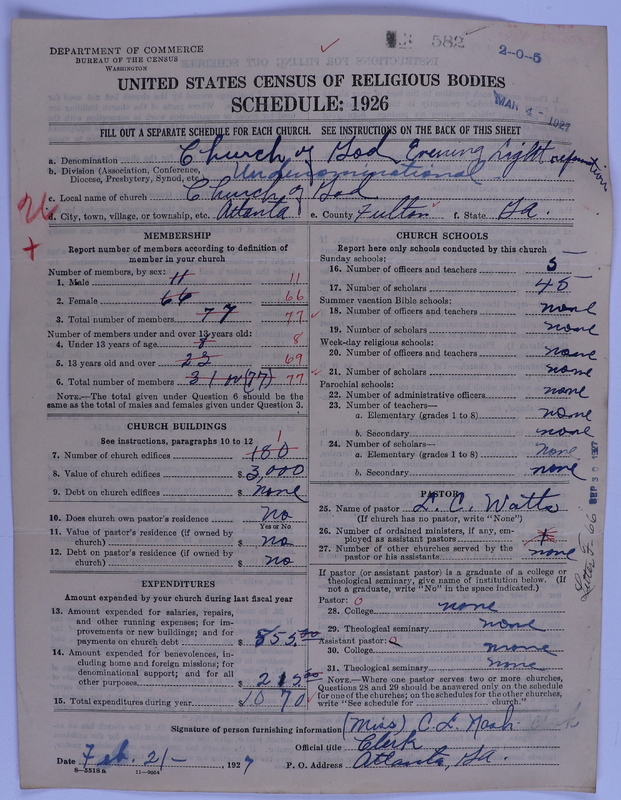 582
2-0-5
DEPARTMENT OF COMMERCE
BUREAU OF THE CENSUS
WASHINGTON
UNITED STATES CENSUS OF RELIGIOUS BODIES
SCHEDULE: 1926
MAR 4 - 1927
FILL OUT A SEPARATE SCHEDULE FOR EACH CHURCH. SEE INSTRUCTIONS ON THE BACK OF THIS SHEET
a. Denomination Church of God, Evening Light reformation
b. Division (Association, Conference, Diocese, Presbytery, Synod, etc.) Undenominational
c. Local name of church Church of God
d. City, town, village, or township, etc. Atlanta e. County Fulton f. State Ga.
MEMBERSHIP
Report number of members according to definition of
member in your church
Number of members, by sex:
1. Male 11 11
2. Female 66 66
3. Total number of members 77 77
Number of members under and over 13 years old:
4. Under 13 years of age 8 8
5. 13 years old and over 23 69
6. Total number of members 31 or (77) 77
NOTE.—The total given under Question 6 should be
same as the total of males and females given under Question 3.
CHURCH BUILDINGS
See instructions, paragraphs 10 to 12
7. Number of church edifices 1
8. Value of church edifices $ 3,000
9. Debt on church edifices $ none
10. Does church own pastor's residence no
Yes or No
11. Value of pastor's residence (if owned by
church) $ no
12. Debt on pastor's residence (if owned by
church) $ no
EXPENDITURES
Amount expended by your church during last fiscal year
13. Amount expended for salaries, repairs,
and other running expenses; for im-
provements or new buildings; and for
payments on church debt $ 855.00
14. Amount expended for benevolences, in-
cluding home and foreign missions; for
denominational support; and for all
other purposes $ 215.00
15. Total expenditures during year $ 1070
CHURCH SCHOOLS
Report here only schools conducted by this church
Sunday schools:
16. Number of officers and teachers 5
17. Number of scholars 45
Summer vacation Bible schools:
18. Number of officers and teachers none
19. Number of scholars none
Week-day religious schools:
20. Number of officers and teachers none
21. Number of scholars none
Parochial schools:
22. Number of administrative officers none
23. Number of teachers—
a. Elementary (grades 1 to 8) none
b. Secondary none
24. Number of scholars—
a. Elementary (grades 1 to 8) none
b. Secondary none
PASTOR
25. Name of pastor L. C. Watts
(If church has no pastor, write "None")
26. Number of ordained ministers, if any, em-
ployed as assistant pastors
27. Number of other churches served by the
pastor or his assistants none
If pastor (or assistant pastor) is a graduate of a college or
theological seminary, give name of institution below. (If
not a graduate, write "No" in the space indicated.)
Pastor: 0
28. College none
29. Theological seminary none
Assistant pastor: 0
30. College none
31. Theological seminary none
NOTE.—Where one pastor serves two or more churches,
Questions 28 and 29 should be answered only on the schedule
for one of the churches; on the schedules for the other churches,
write "See schedule for church."
Signature of person furnishing information (Miss) C. L. Nash
Official title Clerk
Date Feb. 21- 1927 P. O. Address Atlanta, Ga.
8-5518a 11-9054